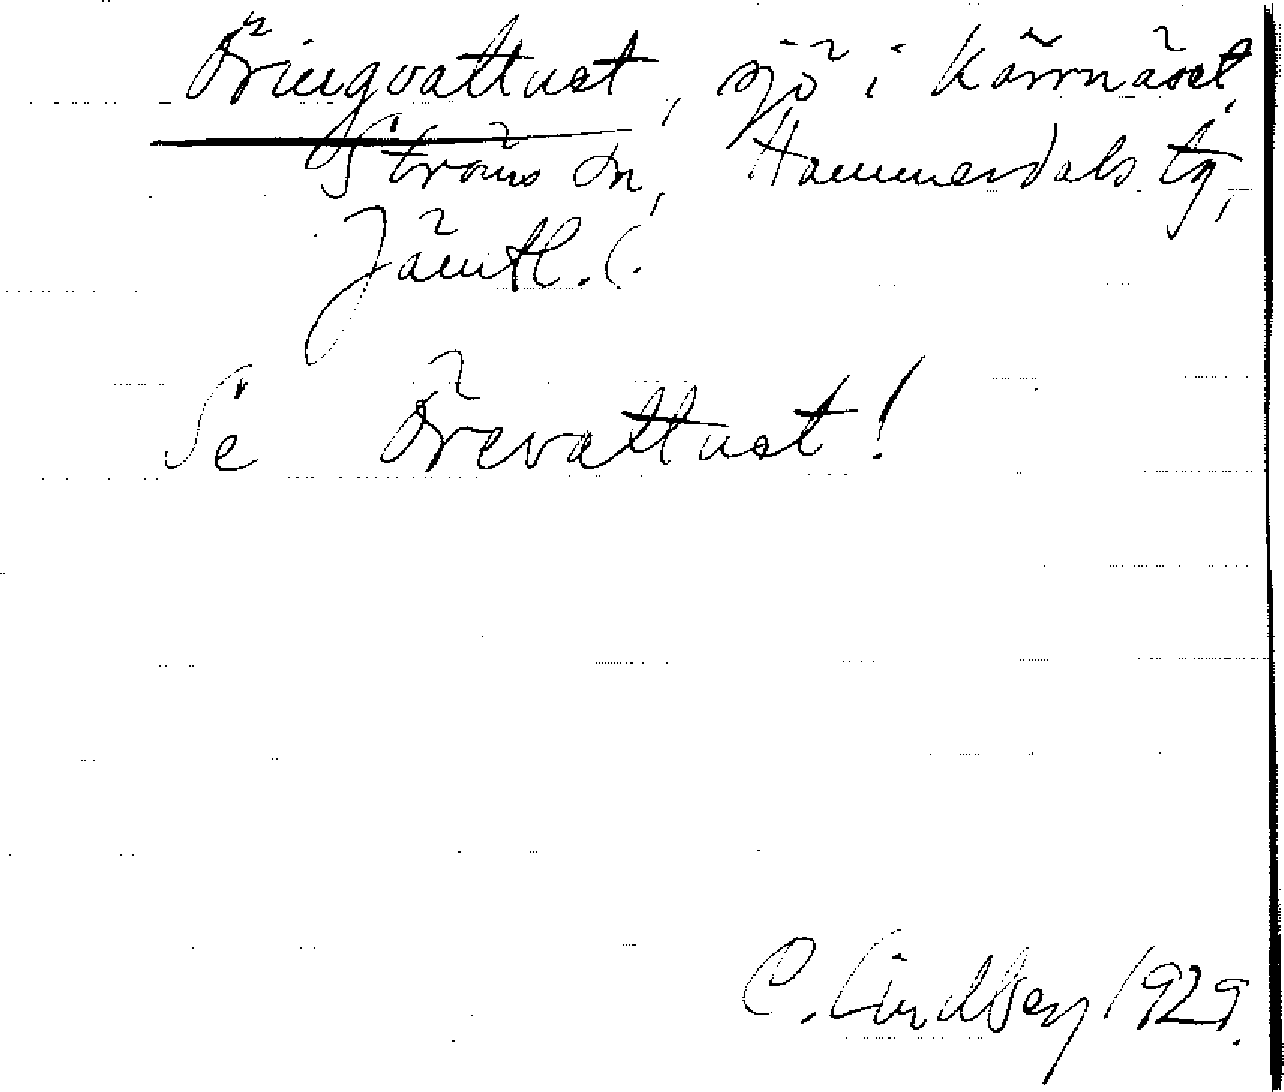 Öringvattnet, sjö i Kärrnäset,
Ströms sn, Hammerdals tg,
Jämtl. l.
Se Örevattnet!
C. Lindberg 1929.